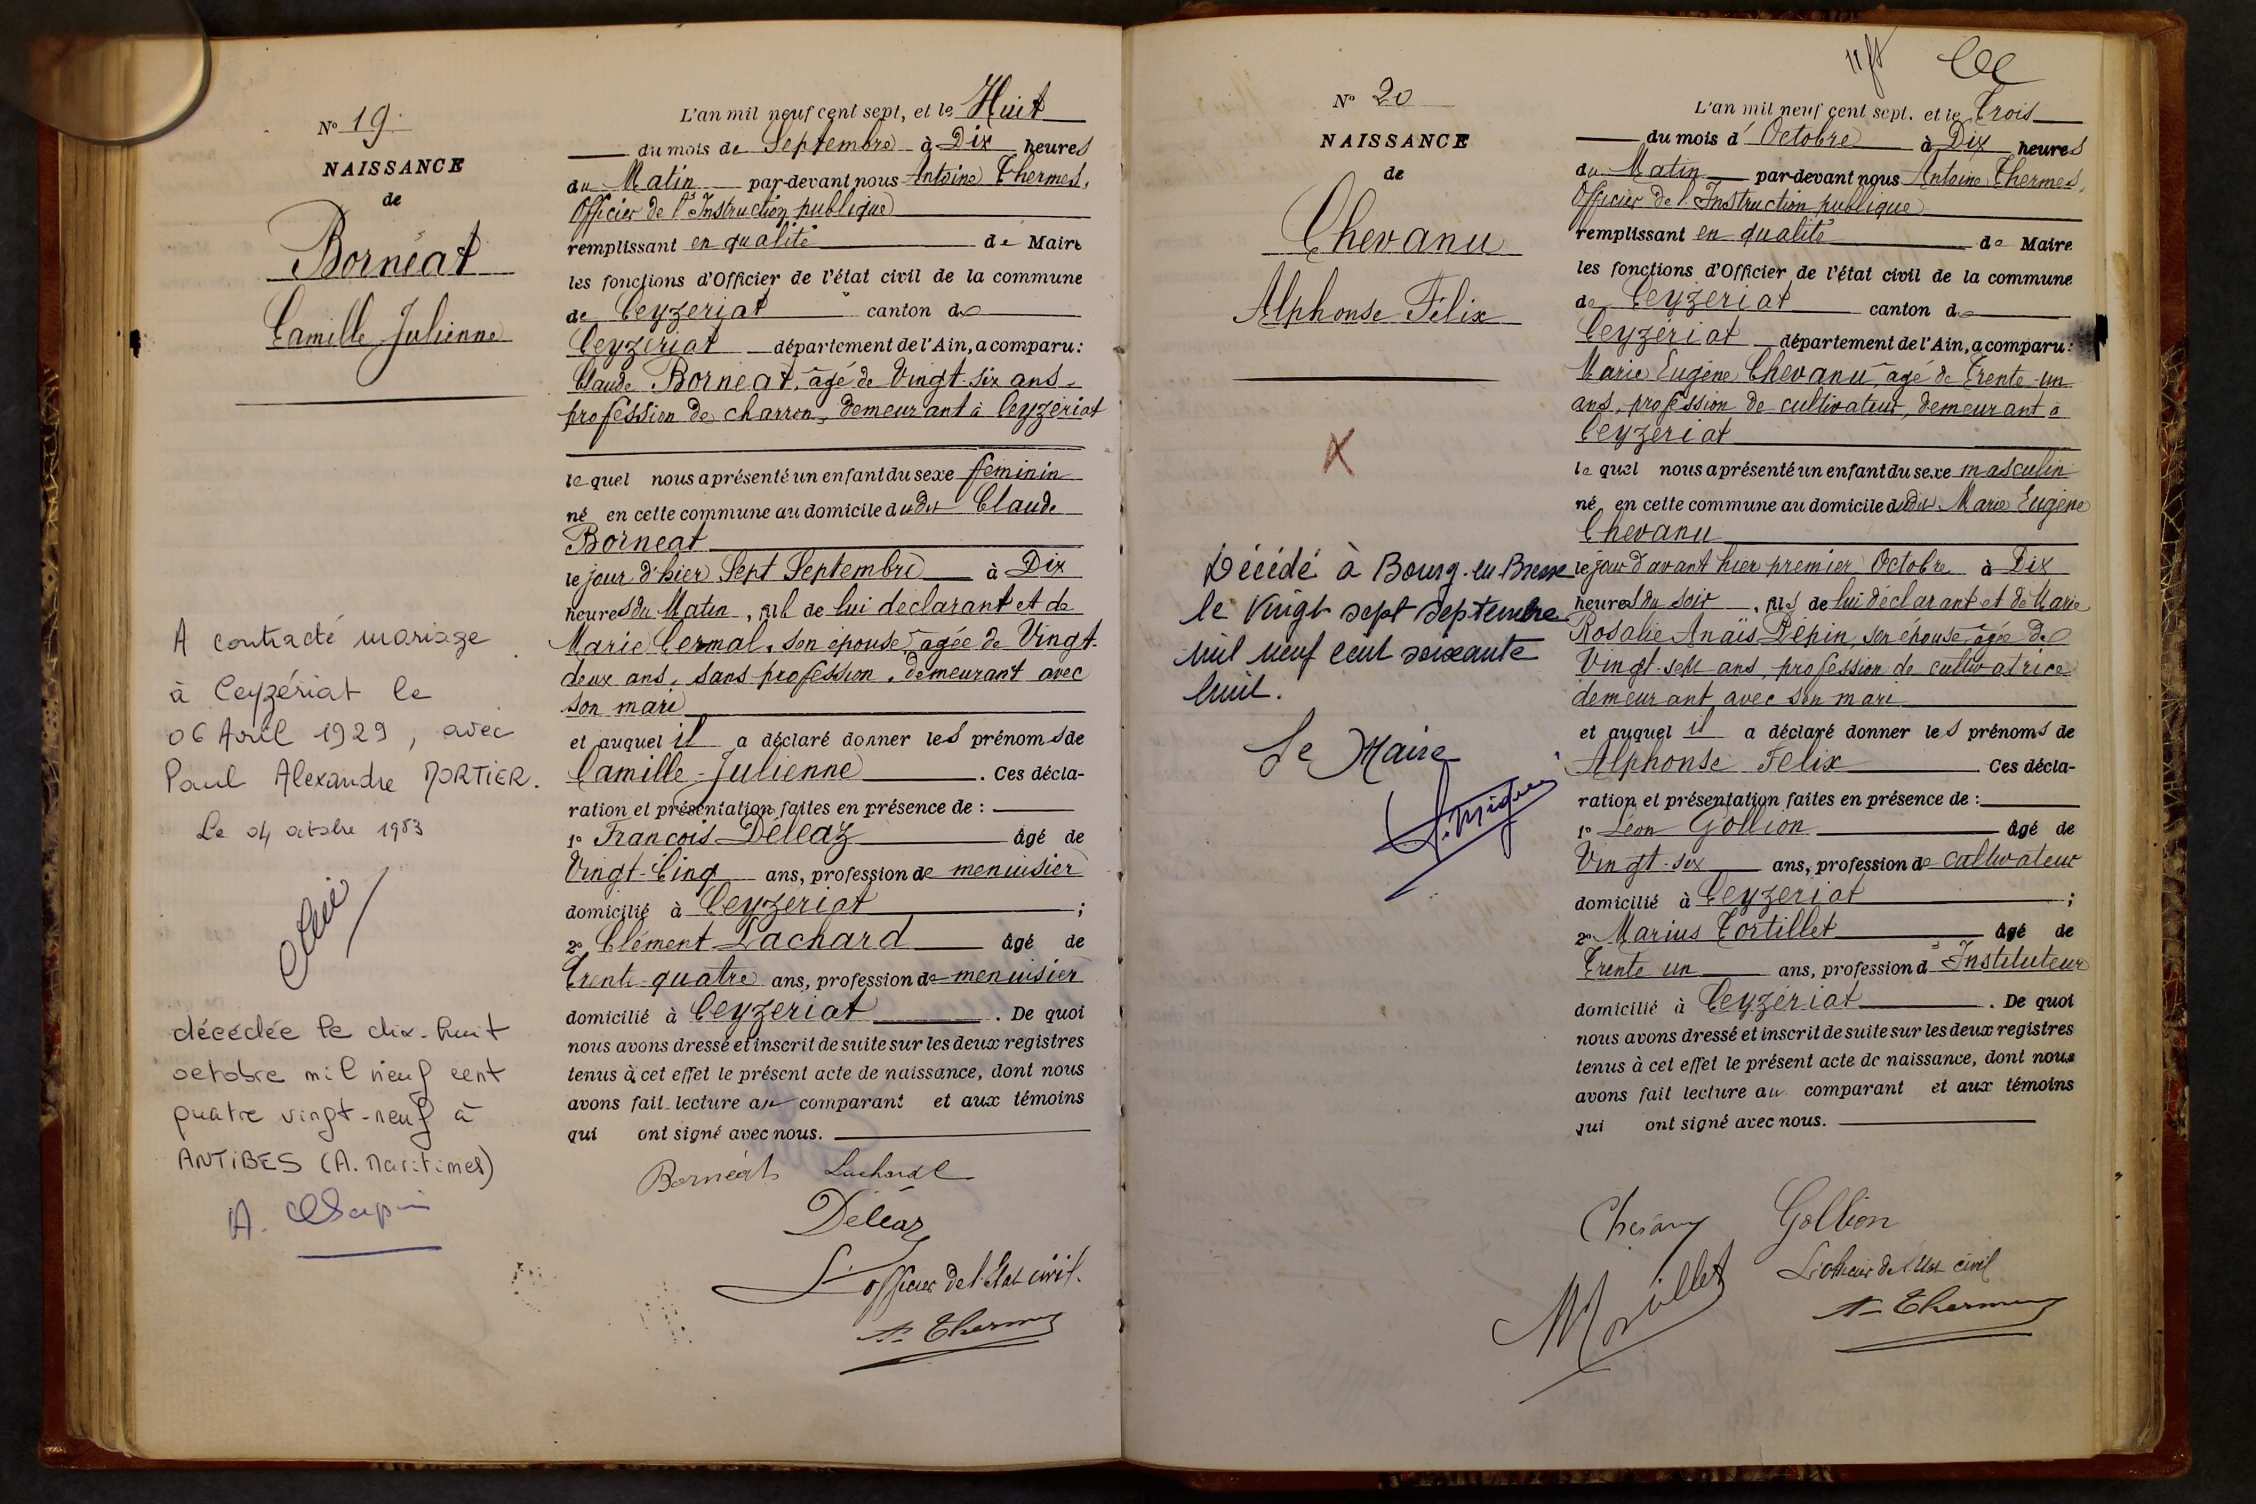 N° 19.
NAISSANCE
de
Bornéat
Camille Julienne
A contracté mariage
à Ceyzériat le
06 Avril 1929, avec
Paul Alexandre MORTIER.
Le 04 octobre 1983
décédée le dix-huit
octobre mil neuf cent
quatre vingt-neuf à
ANTIBES (A. Maritimes)
L'an mil neuf cent sept, et le Huit
du mois de Septembre à Dix heures
du Matin par-devant nous Antoine Thermes,
Officier de l'Instruction publique
remplissant en qualité de Maire
les fonctions d'Officier de l'état civil de la commune
de Ceyzériat canton de
Ceyzériat département de l'Ain, a comparu:
Claude Bornéat, âgé de Vingt-six ans,
profession de charron, demeurant à Ceyzériat
le quel nous a présenté un enfant du sexe féminin
né en cette commune au domicile dudit Claude
Bornéat
le jour d'hier Sept Septembre à Dix
heures du Matin, fil de lui déclarant et de
Marie Cermal, son épouse, agée de Vingt-
deux ans, sans profession, demeurant avec
son mari
et auquel il a déclaré donner les prénoms de
Camille Julienne. Ces décla-
ration et présentation faites en présence de :
1° François Déléaz âgé de
Vingt-Cinq ans, profession de menuisier
domicilié à Ceyzériat ;
2° Clément Lachard âgé de
Trente-quatre ans, profession de menuisier
domicilié à Ceyzériat. De quoi
nous avons dressé et inscrit de suite sur les deux registres
tenus à cet effet le présent acte de naissance, dont nous
avons fait lecture au comparant et aux témoins
qui ont signé avec nous.
Bornéat Lachard
Déléaz
L'officier de l'Etat civil.
A. Thermes
N° 20
NAISSANCE
de
Chevanu
Alphonse Félix
X
Décédé à Bourg-en-Bresse
le vingt sept septembre
mil neuf cent soixante
huit.
Le Maire
L'an mil neuf cent sept, et le Trois
du mois d'Octobre à Dix heures
du Matin par-devant nous Antoine Thermes,
Officier de l'Instruction publique
remplissant en qualité de Maire
les fonctions d'Officier de l'état civil de la commune
de Ceyzériat canton de
Ceyzériat département de l'Ain, a comparu:
Marie Eugène Chevanu, âgé de Trente-un
ans, profession de cultivateur, demeurant à
Ceyzériat
le quel nous a présenté un enfant du sexe masculin
né en cette commune au domicile dudit Marie Eugène
Chevanu
le jour d'avant hier premier Octobre à Dix
heures du soir, fils de lui déclarant et de Marie
Rosalie Anaïs Pépin, son épouse, âgée de
Vingt-sept ans, profession de cultivatrice
demeurant avec son mari
et auquel il a déclaré donner les prénoms de
Alphonse Félix Ces décla-
ration et présentation faites en présence de :
1° Léon Gollion âgé de
Vingt-six ans, profession de cultivateur
domicilié à Ceyzériat ;
2° Marius Tortillet âgé de
Trente un ans, profession d'Instituteur
domicilié à Ceyzériat. De quoi
nous avons dressé et inscrit de suite sur les deux registres
tenus à cet effet le présent acte de naissance, dont nous
avons fait lecture au comparant et aux témoins
qui ont signé avec nous.
Gollion
L'officier de l'Etat civil
A. Thermes